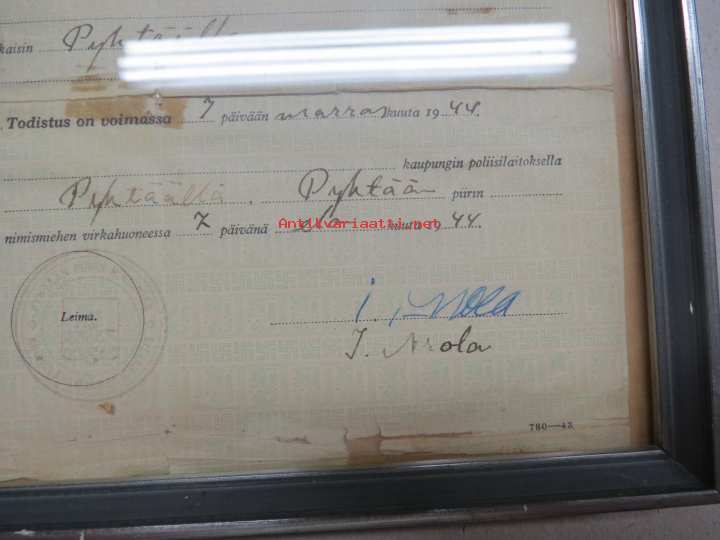 kaisin Pyhtäällä
Todistus on voimassa 7 päivään marraskuuta 1944.
kaupungin poliisilaitoksella
Pyhtäällä. Pyhtään piirin
nimismiehen virkahuoneessa 7 päivänä kuuta 1944.
Antikvariaatti.net
Leima.
I. Arola
I. Arola
780—43